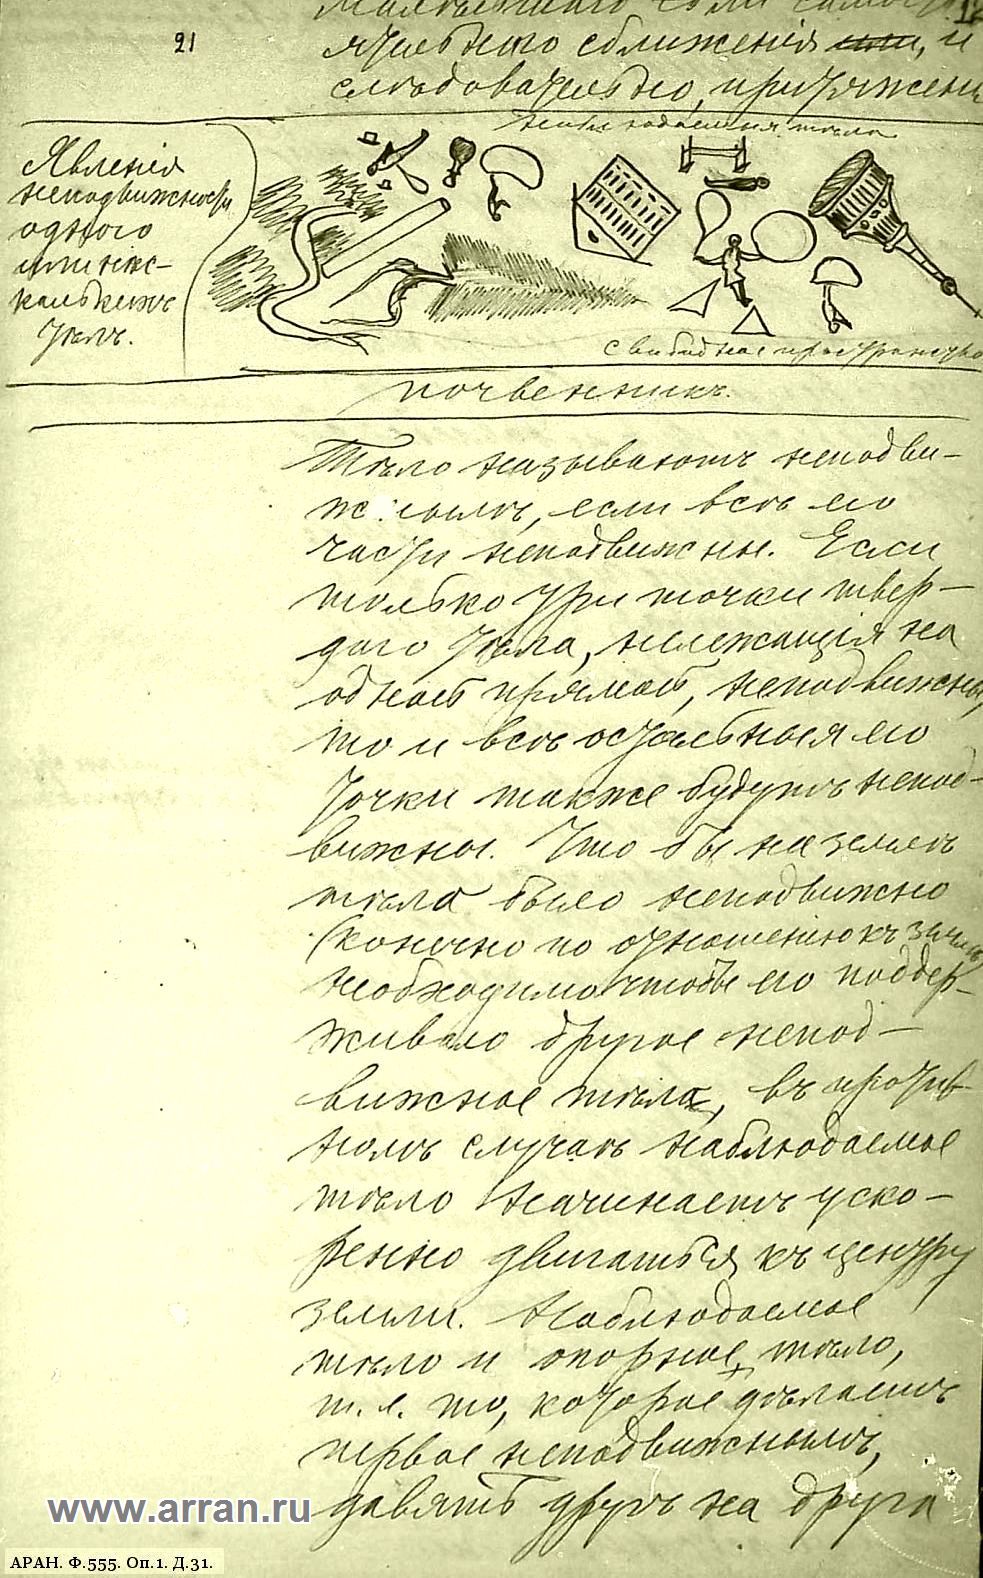 21
ятельнаго сближенія или, и
слѣдовательно, притяжені
наблюдаемыя тѣла
Явленія
неподвижности
одного
или нѣс-
колькихъ
тѣлъ.
Свободное пространство
почвенникъ.
Тѣло называютъ неподви-
жнымъ, если всѣ его
части неподвижны. Если
только три точки твер-
даго тѣла, нележащія на
одной прямой, неподвижны,
то и всѣ остальныя его
точки также будутъ непод-
вижны. Что бы на землѣ
тѣло было неподвижно
(конечно по отношенію къ землѣ
необходимо чтобы его поддер-
живало другое непод-
вижное тѣло, въ против-
номъ случаѣ наблюдаемое
тѣло начинаетъ уско-
ренно двигаться къ центру
земли. Наблюдаемое
тѣло и опорное тѣло,
т. е. то, которое дѣлаетъ
первое неподвижнымъ,
давятъ другъ на друга
www.arran.ru
АРАН. Ф.555. Оп.1. Д.31.